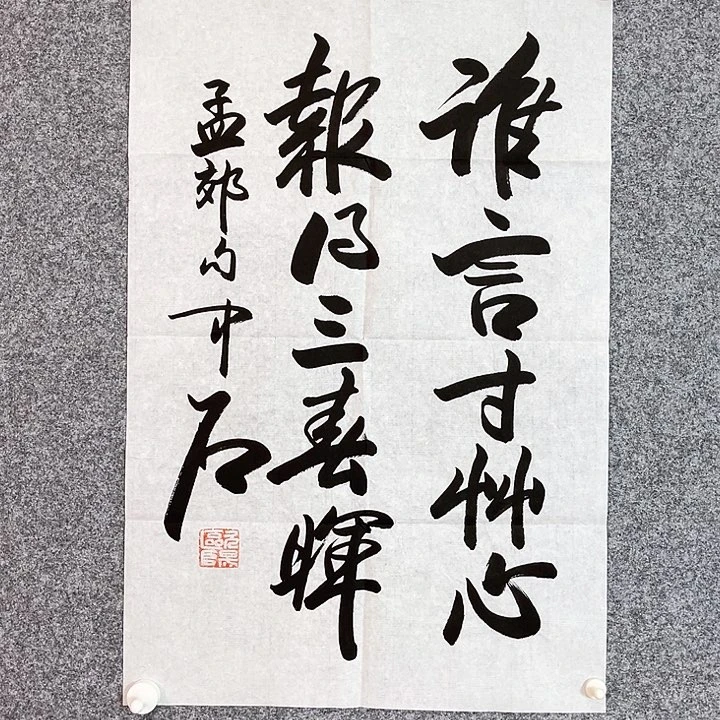 谁言寸艸心
報得三春暉
孟郊句中石